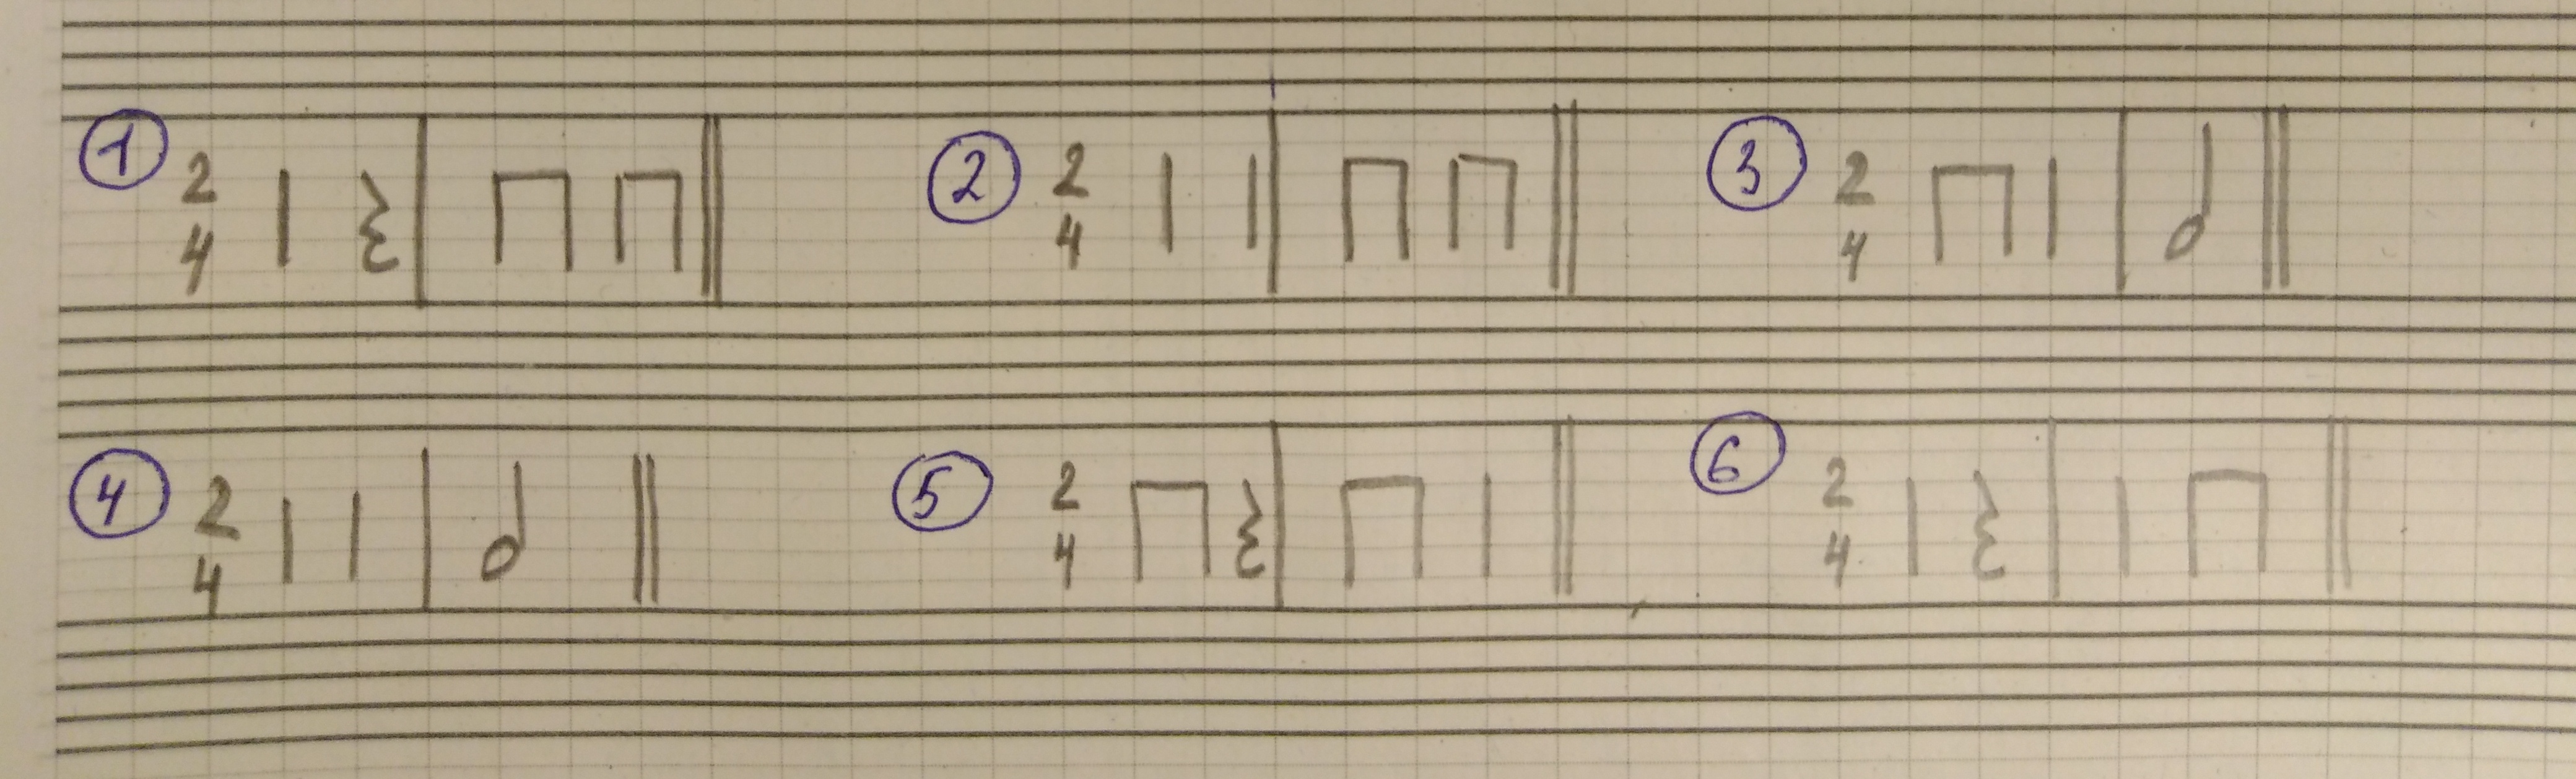 1 2 4 2 2 4 3 2 4
4 2 4 5 2 4 6 2 4